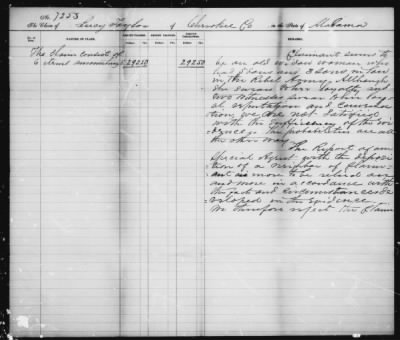 No. 7253
The Claim of Lucy Taylor of Cherokee Co in the State of Alabama
NO. NATURE OF CLAIM. AMOUNT CLAIMED. AMOUNT ALLOWED. AMOUNT DISALLOWED. REMARKS.
The Claim consists of
6 items amounting 292 50 292 50
Claimant seems to
be an old widow woman who
had sons and 3 sons in law
in the Rebel Army. Although
she swears to her loyalty and
two witnesses swear to her loy
al reputation and conversa
tion, we are not satisfied
with the sufficiency of the evi
dence. The probabilities are all
the other way.
The Report of our
Special Agent with the deposi
tion of a neighbor of claim
ant is more to be relied on
and more in accordance with
the facts and circumstances de
veloped in the evidence.
We therefore reject the claim